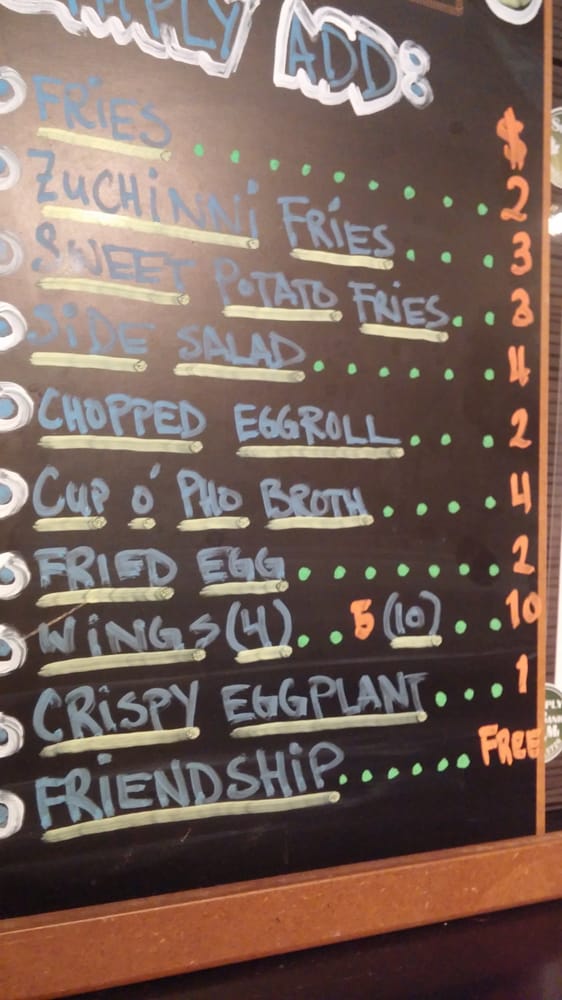 ADD:
$
FRiES 2
ZUCHiNNi FRiES 3
SWEET POTATO FRiES 3
SiDE SALAD 4
CHOPPED EGGROLL 2
CUP O' PHO BROTH 4
FRIED EGG 2
WiNGS (4) 5 (10) 10
CRiSPY EGGPLANT 1
FRiENDSHiP FREE